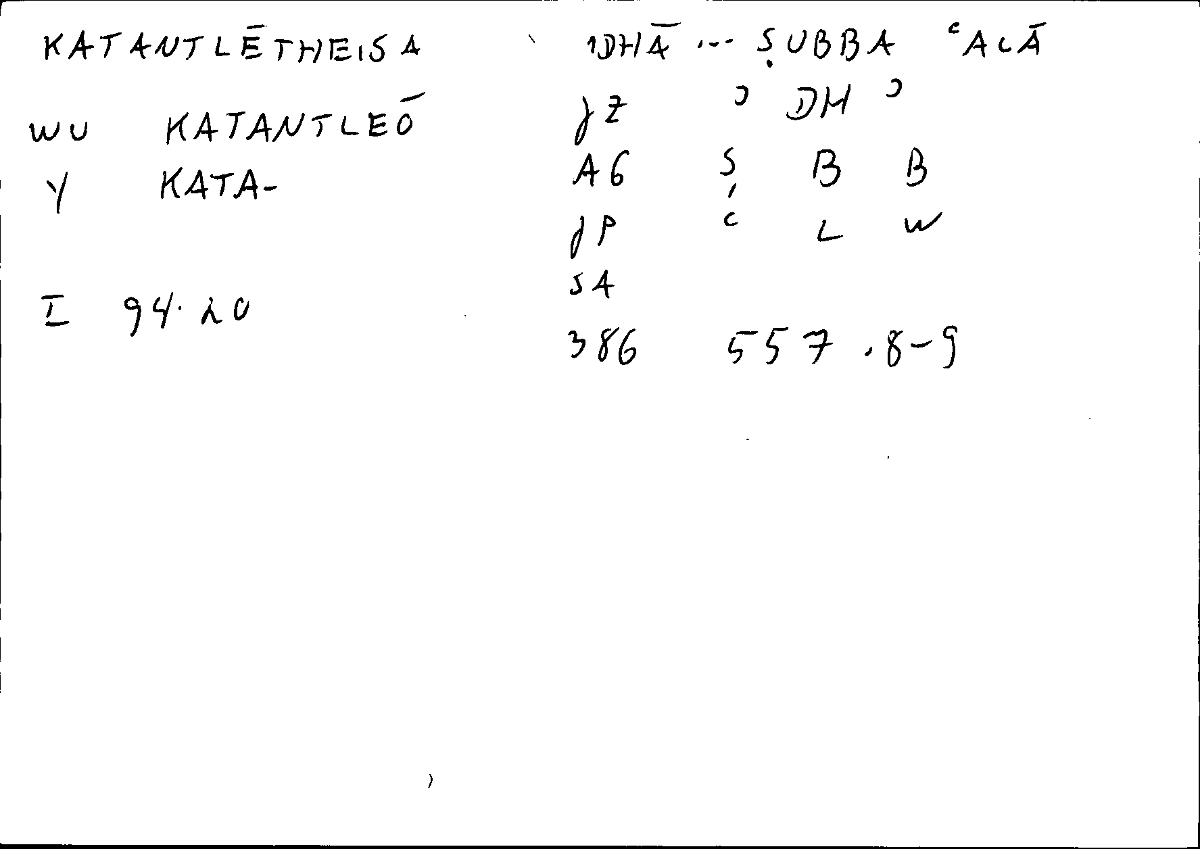 KATANTLĒTHEISA 1DHĀ ... ṢUBBA ʿALĀ
WU KATANTLEŌ JZ ʾ DH ʾ
Y KATA- AG Ṣ B B
JP ʿ L W
SA
I 94.20 386 557.8-9